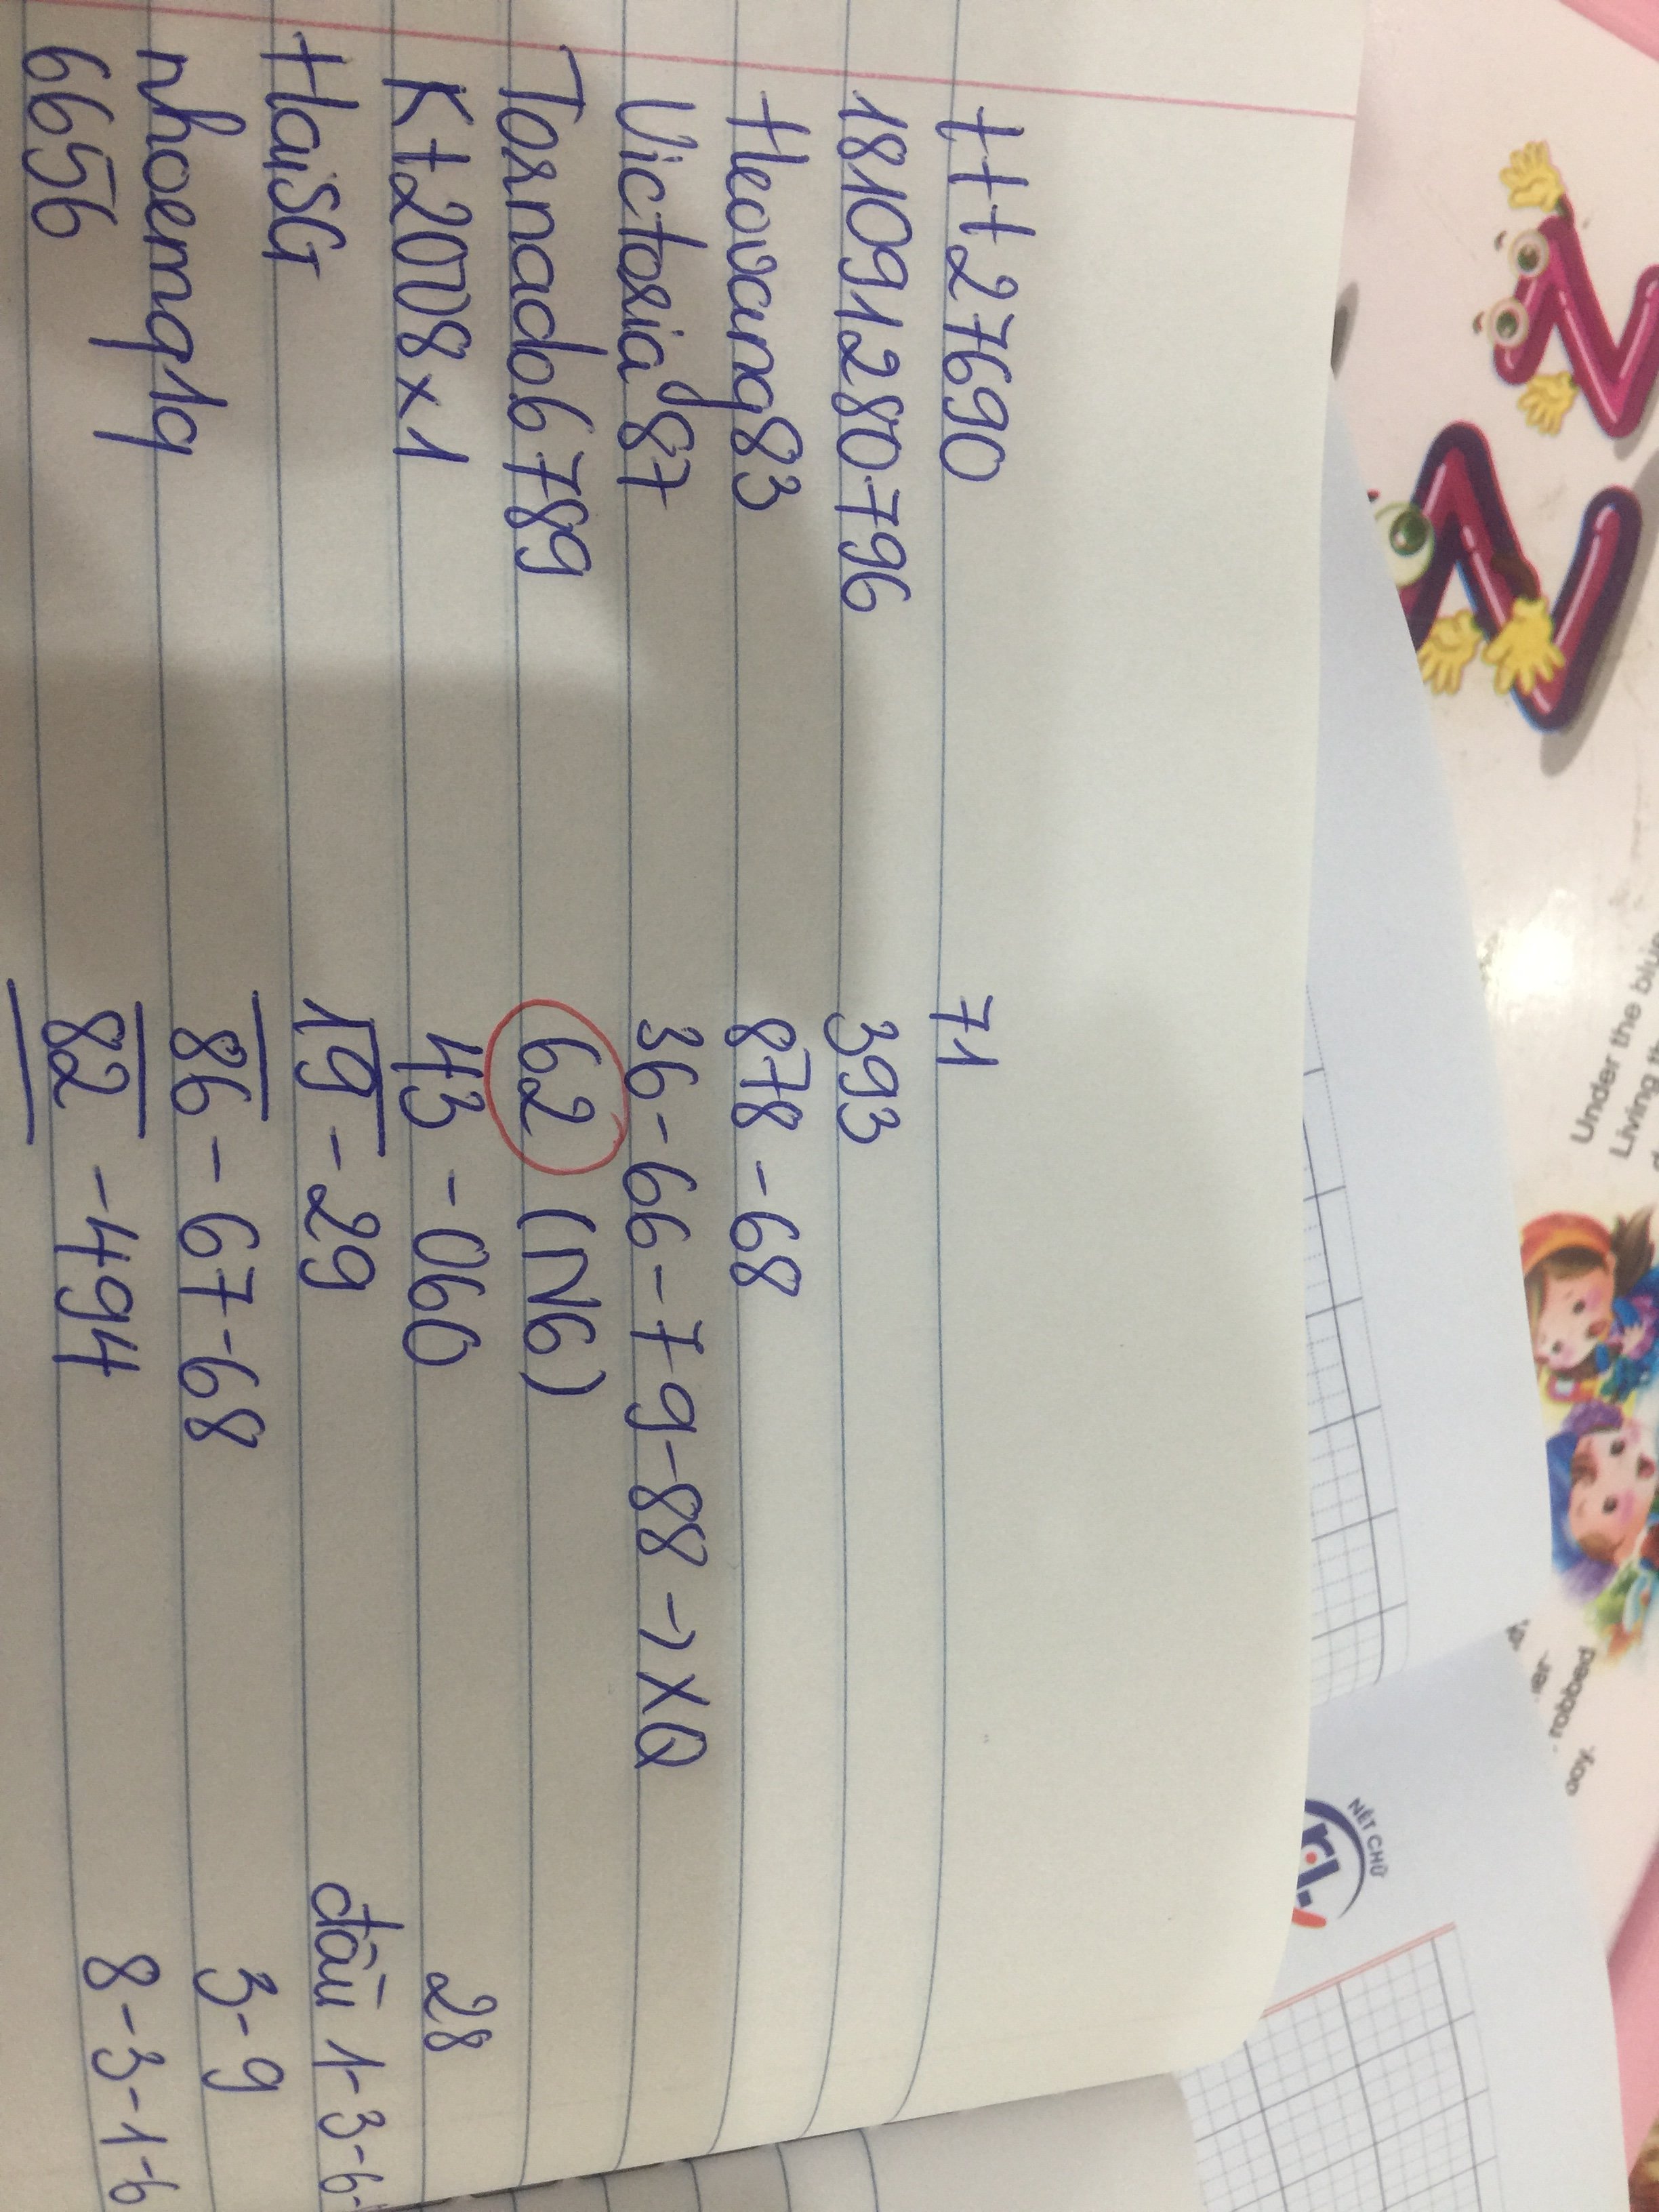 HH27690 71
181091280796 393
Heovang83 878-68
Victoria87 36-66-79-88→XQ
Tornado6789 62 (N6)
K+2008x1 43-060 28
HaiSG 19-29 đầu 1-3-6-
nhoemq19 86-67-68 3-9
6656 82-494 8-3-1-6
Under the blue
Living th
robbed
NÉT CHỮ